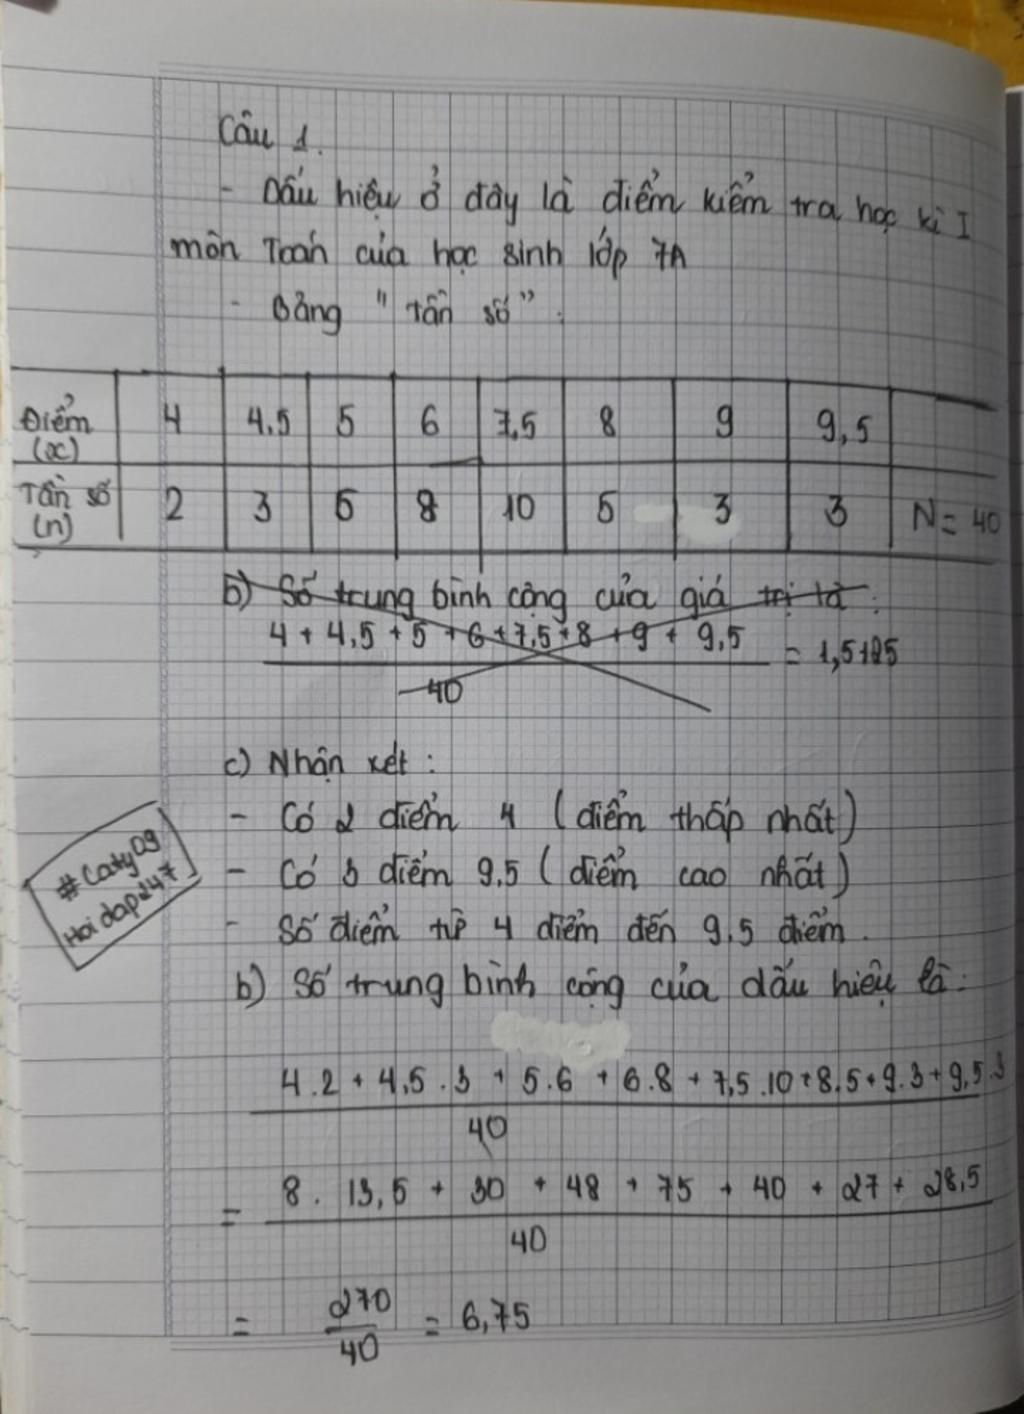 Câu 1.
- Dấu hiệu ở đây là điểm kiểm tra học kì I
môn Toán của học sinh lớp 7A
- Bảng "tần số":
Điểm (x) 4 4,5 5 6 7,5 8 9 9,5
Tần số (n) 2 3 6 8 10 5 3 3 N = 40
b) Số trung bình cộng của giá trị là:
4 + 4,5 + 5 + 6 + 7,5 + 8 + 9 + 9,5 = 1,5125
40
c) Nhận xét:
- Có 2 điểm 4 (điểm thấp nhất)
- Có 3 điểm 9,5 (điểm cao nhất)
- Số điểm từ 4 điểm đến 9,5 điểm.
#Caty09
Hoidap247
b) Số trung bình cộng của dấu hiệu là:
4.2 + 4,5.3 + 5.6 + 6.8 + 7,5.10 + 8.5 + 9.3 + 9,5.3
40
= 8. 13,5 + 30 + 48 + 75 + 40 + 27 + 28,5
40
= 270 = 6,75
40